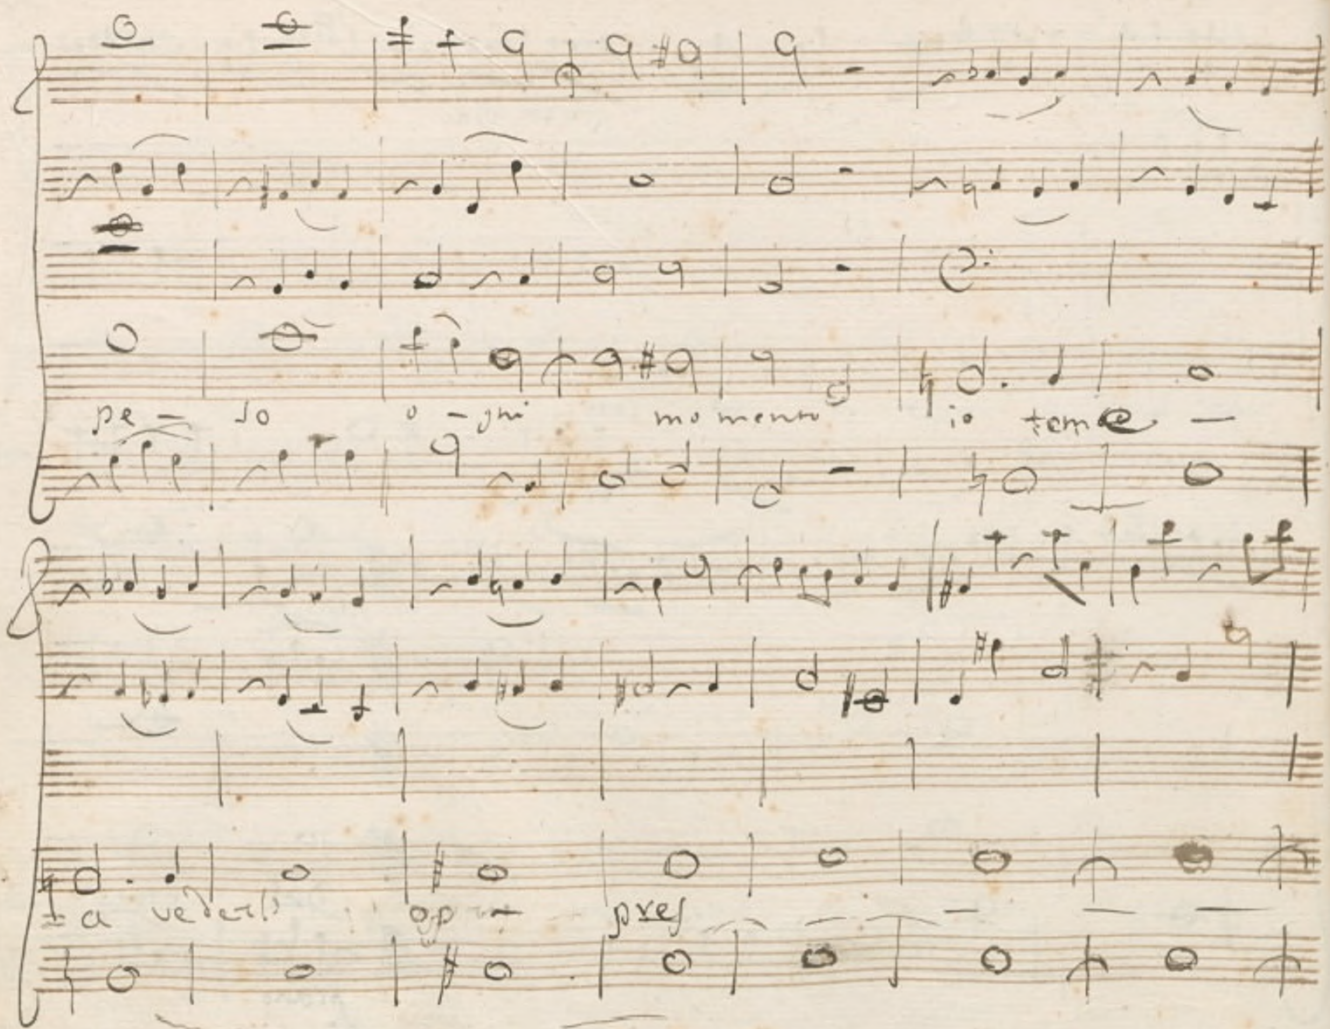 pe - so o - gni momento io teme -
a vederlo op - pres - - - - -